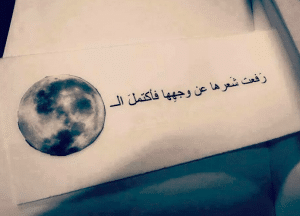 رفعت شعرها عن وجهها فأكتمل الـ